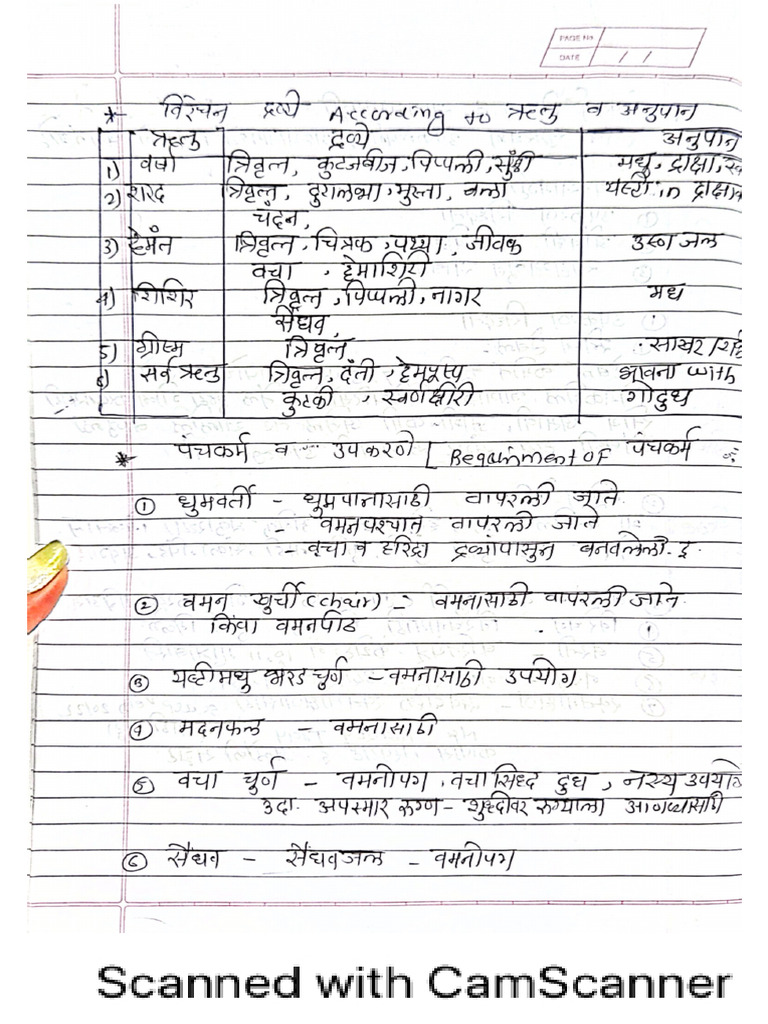 PAGE No.
DATE / /
* विरेचन द्रव्ये According to ऋतु व अनुपान
ऋतु द्रव्ये अनुपान
1) वर्षा त्रिवृत्त, कुटजबीज, पिप्पली, सुंठी मधु, द्राक्षा,
2) शरद त्रिवृत्त, दुरालभा, मुस्ता, बला यष्टी in द्राक्षा
चंदन,
3) हेमंत त्रिवृत्त, चित्रक, पथ्या, जीवक उष्ण जल
वचा, हेमाशिरी
4) शिशिर त्रिवृत्त, पिप्पली, नागर मध
सैंधव,
5) ग्रीष्म त्रिवृत्त साखर
6) सर्व ऋतु त्रिवृत्त, दंती, हेमपुष्प भावना with
कुटकी, स्वर्णक्षीरी गोदुध
* पंचकर्म व उपकरणे [ Requirment of पंचकर्म
① धुमवर्ती - धुम्रपानासाठी वापरली जाते.
- वमनपश्चात वापरली जाते
- वचा व हरिद्रा द्रव्यांपासुन बनवलेली. इ.
② वमन खुर्ची (chair) - वमनासाठी वापरली जाते.
किंवा वमनपीठ
③ यष्टीमधु भरड चुर्ण - वमनासाठी उपयोग
④ मदनफल - वमनासाठी
⑤ वचा चुर्ण - वमनोपग, वचा सिध्द दुध, नस्य
उदा. अपस्मार रुग्ण - शुद्धीवर रुग्णाला आणण्यासाठी
⑥ सैंधव - सैंधवजल - वमनोपग
Scanned with CamScanner